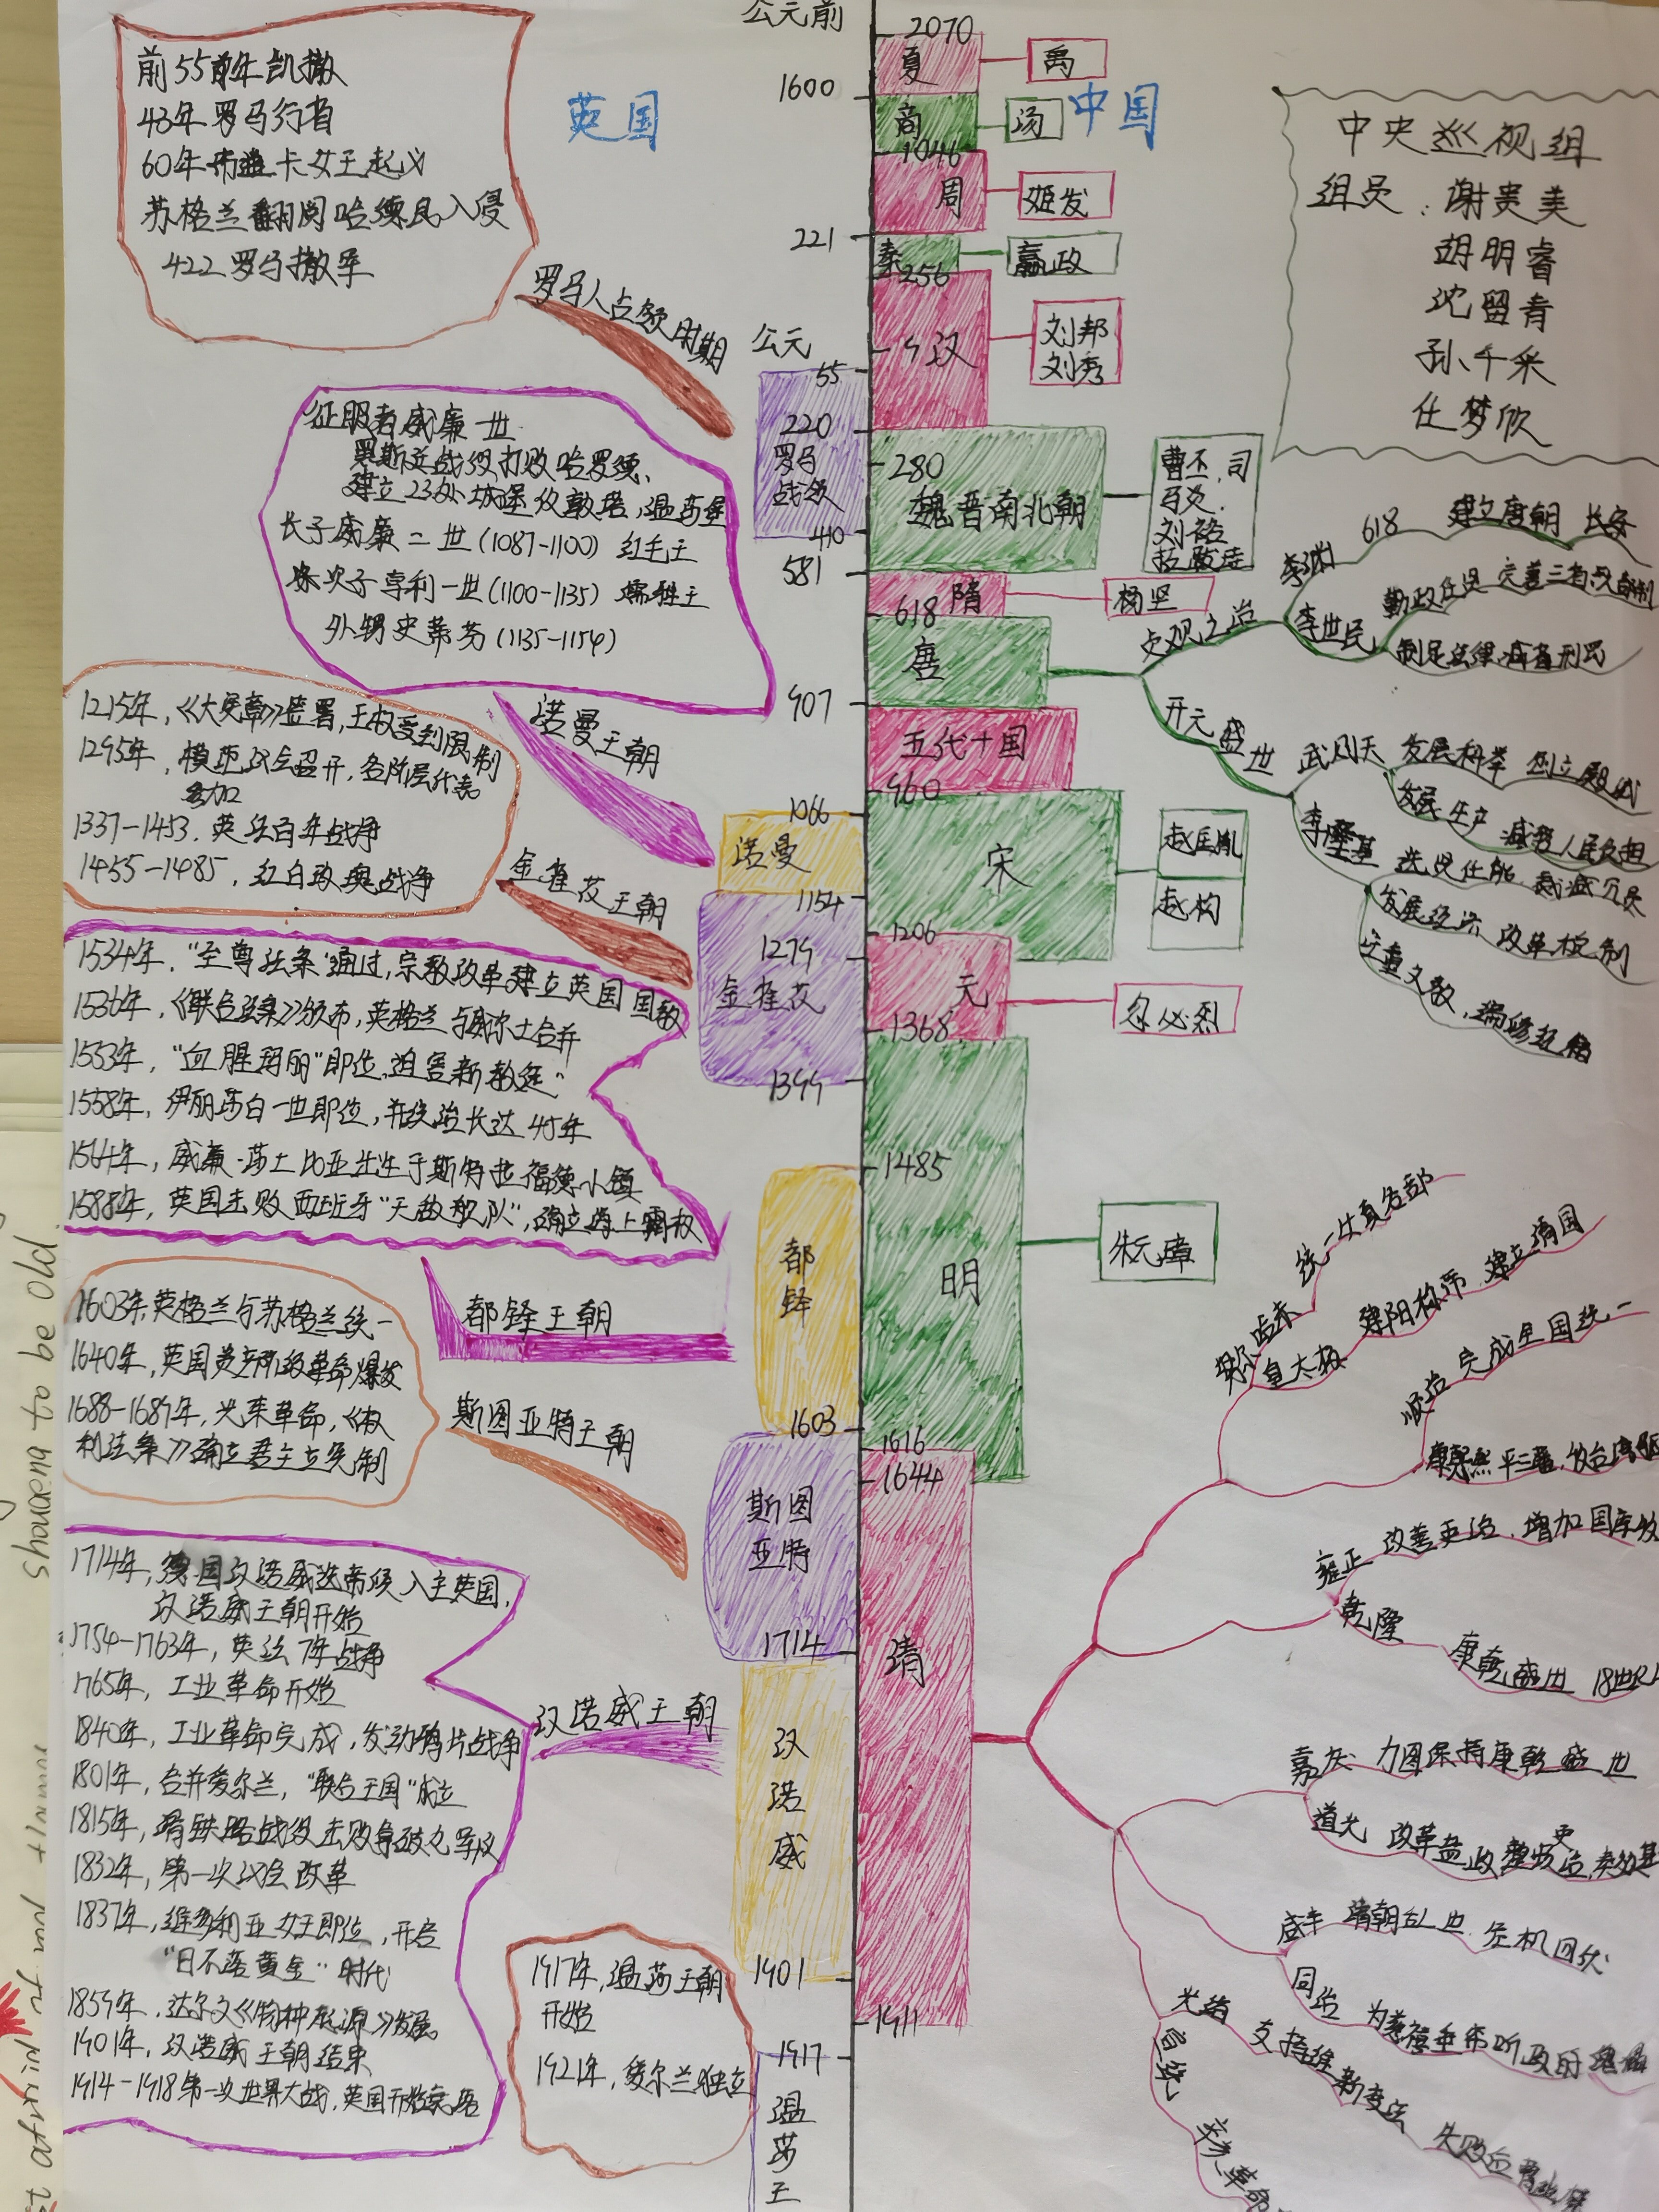 公元前
英国
中国
前55年凯撒
43年罗马行省
60年 卡女王起义
苏格兰 入侵
422罗马撤军
罗马人占领时期
征服者威廉一世
战役打败哈罗德、
建立23处城堡 敦塔,温莎堡
长子威廉二世(1087-1100)红毛王
次子亨利一世(1100-1135) 王
外甥史蒂芬(1135-1154)
诺曼王朝
1215年,《大宪章》签署,王权受到限制
1295年,模范议会召开,各阶层代表
参加
1337-1453,英法百年战争
1455-1485,红白玫瑰战争
金雀花王朝
1534年,"至尊法案"通过,宗教改革建立英国国教
1536年,《联合法案》颁布,英格兰与威尔士合并
1553年,"血腥玛丽"即位,迫害新教徒"
1558年,伊丽莎白一世即位,并统治长达45年
1564年,威廉·莎士比亚出生于斯特拉福德小镇
1588年,英国击败西班牙"无敌舰队",确立海上霸权
都铎王朝
1603年,英格兰与苏格兰统一
1640年,英国资产阶级革命爆发
1688-1689年,光荣革命,《权
利法案》确立君主立宪制
斯图亚特王朝
1714年,德国汉诺威选帝侯入主英国,
汉诺威王朝开始
1754-1763年,英法7年战争
1765年,工业革命开始
1840年,工业革命完成,发动鸦片战争
1801年,合并爱尔兰,"联合王国"成立
1815年,滑铁路战役击败拿破仑军队
1832年,第一次议会改革
1837年,维多利亚女王即位,开启
"日不落黄金"时代
1859年,达尔文《物种起源》发表
1901年,汉诺威王朝结束
1914-1918第一次世界大战,英国开始衰落
汉诺威王朝
1917年,温莎王朝
开始
1921年,爱尔兰独立
公元
55
罗马
战役
410
1066
诺曼
1154
金雀花
1399
1485
都
铎
1603
斯图
亚特
1714
汉
诺
威
1901
1917
温
莎
王
2070
夏
禹
1600
商
汤
1046
周
姬发
221
秦
嬴政
256
汉
刘邦
刘秀
220
280
魏晋南北朝
曹丕,司
马炎,
刘裕
581
隋
杨坚
618
唐
907
五代十国
960
宋
赵匡胤
赵构
1206
1279
元
忽必烈
1368
明
朱元璋
1616
1644
清
1911
中央巡视组
组员:谢贵美
胡明睿
沈留青
孙千采
仕梦欣
贞观之治
李渊
618 建立唐朝 长安
李世民
勤政任贤 完善三省六部制
制定法律,减省刑罚
开元盛世
武则天 发展科举 创立殿试
发展生产 减轻人民负担
李隆基 选贤任能,裁减冗员
发展经济 改革税制
注重文教,编修经籍
努尔哈赤 统一女真各部
皇太极 建立清国
顺治 完成全国统一
康熙 平三藩,收台湾
雍正 改善吏治,增加国库收
乾隆 康乾盛世 18世纪
嘉庆 力图保持康乾盛世
道光 改革盐政 整顿吏治
咸丰 清朝乱世 危机四伏
同治 为慈禧垂帘听政时
光绪 支持维新变法 失败后
宣统 辛亥革命